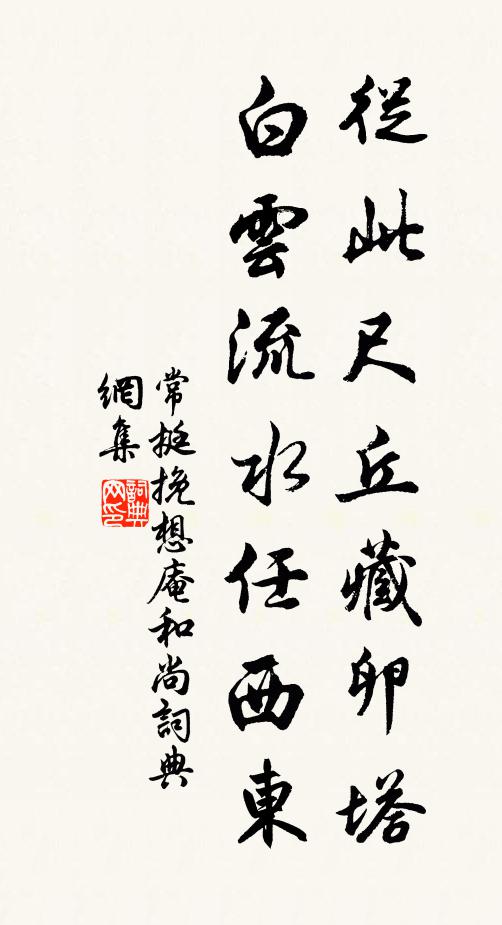 從此尺丘藏卵塔
白雲流水任西東
常挺挽想庵和尚詞典
網集
詞典
网印